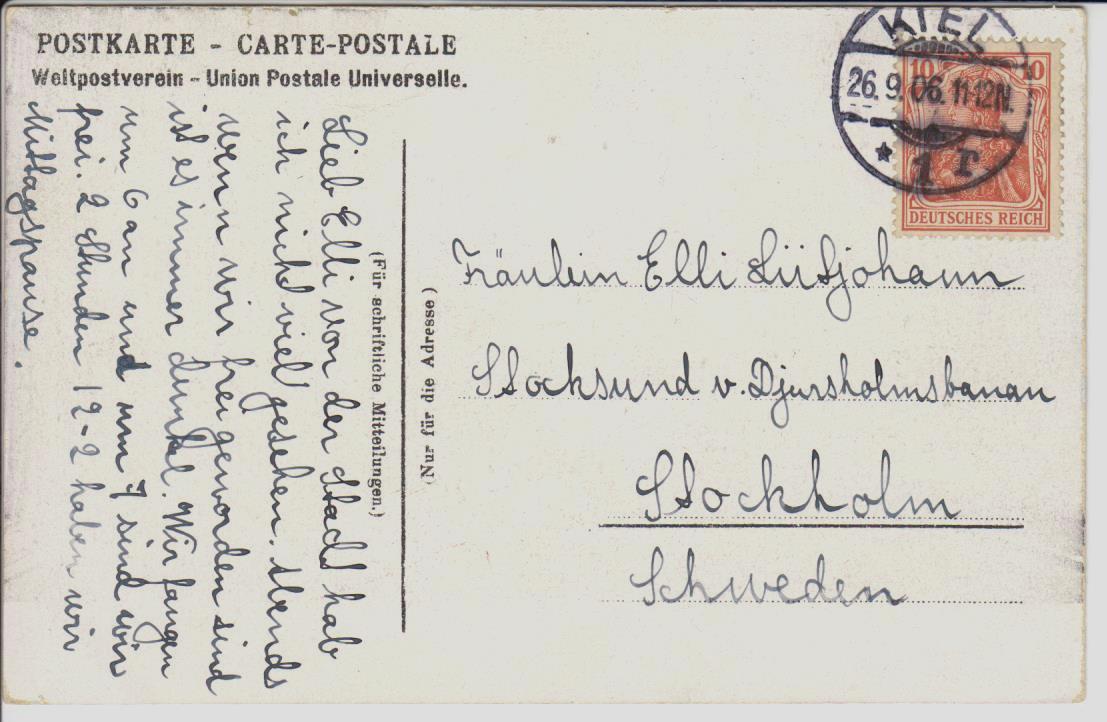 POSTKARTE - CARTE-POSTALE
Weltpostverein - Union Postale Universelle.
KIEL
26. 9. 06. 11-12N.
* 1 r.
10 10
DEUTSCHES REICH
Lieb Elli von der Stadt hab
ich nicht viel gesehen. Abends
wenn wir frei geworden sind
ist es immer dunkel. Wir fangen
um 6 an und um 7 sind wir
frei. 2 Stunden 12-2 haben wir
Mittagspause.
(Für schriftliche Mitteilungen.)
(Nur für die Adresse)
Fräulein Elli Lütjohann
Stocksund v. Djursholmsbanan
Stockholm
Schweden